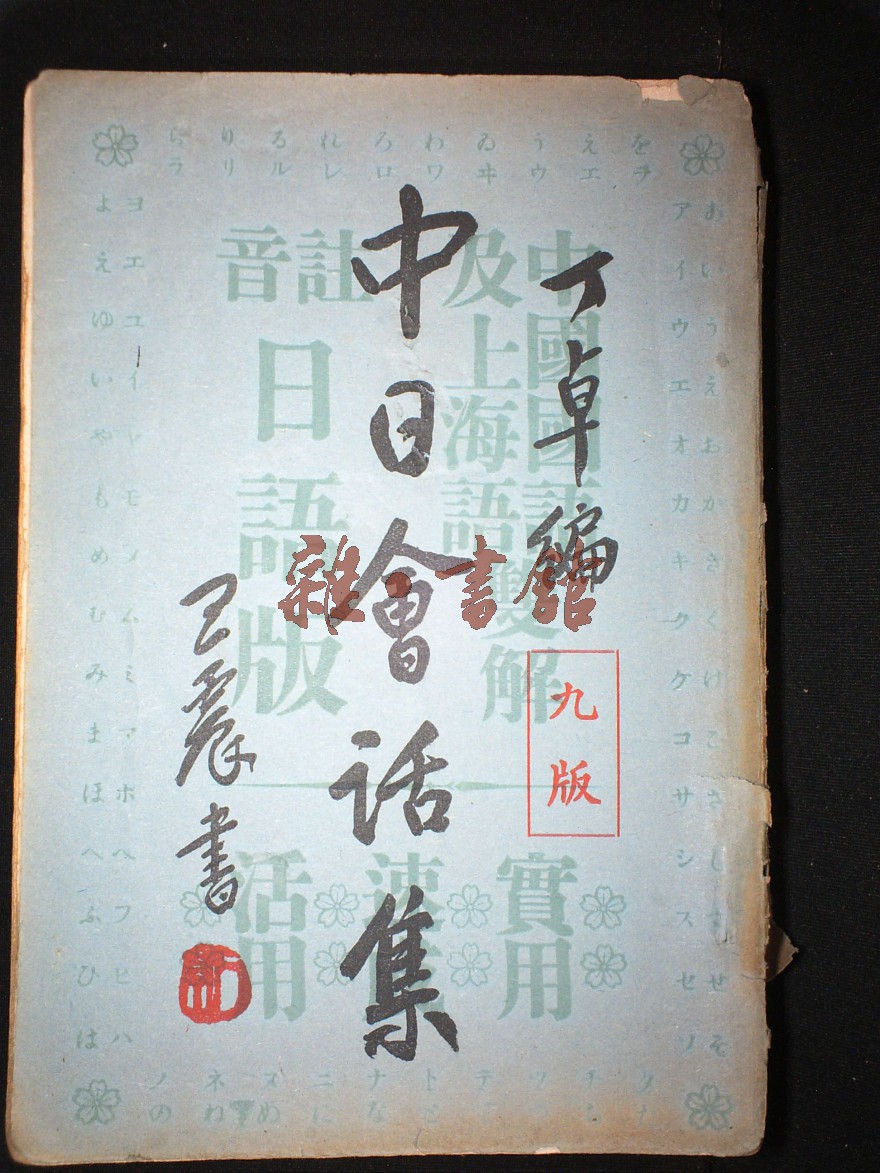 丁卓編
中日會话集
王震書
九版
中國國語
及上海語
雙解
註音
日語版
實用
速
活用
雜・書館
をヲ えエ うウ ゐヰ わワ ろロ れレ るル りリ らラ
あいうえおかきくけこさしすせそ
アイウエオカキクケコサシスセソ
タた チち ツつ テて トと ナな ニに ヌぬ ネね ノの
ハヒフヘホマミムメモヤイユエヨ
はひふへほまみむめもやいゆえよ